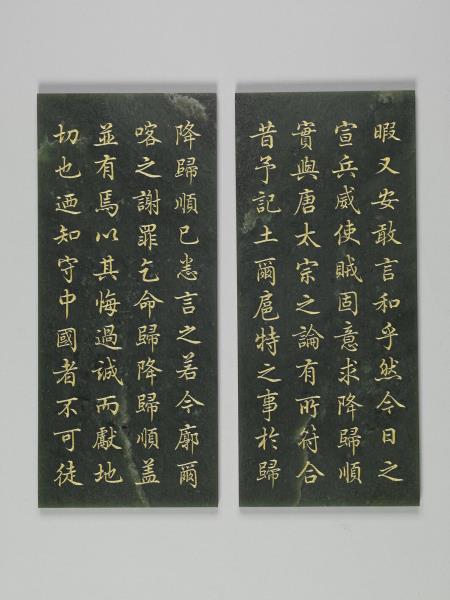 暇又安敢言和乎然今日之
宣兵威使賊固意求降歸順
實與唐太宗之論有所符合
昔予記土爾扈特之事於歸
降歸順已悉言之若今廓爾
喀之謝罪乞命歸降歸順蓋
並有焉以其悔過誠而獻地
切也迺知守中國者不可徒